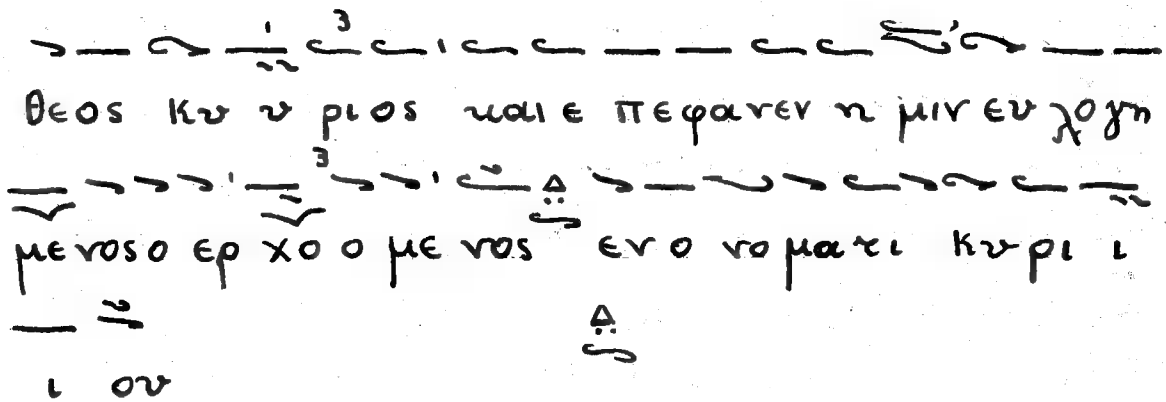 θεος κυ υ ριος και ε πεφανεν η μιν ευ λογη
μενοςο ερ χο ο ο με νος ενο νοματι κυρι ι
ι ου